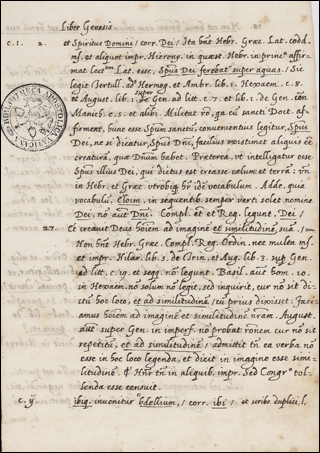 Liber Genesis.
c. 1. 2. et Spiritus Domini / corr. Dei / Ita hñt Hebr. Græc. Lat. codd.
mſ. et aliquot impr. Hieròny. in quæst. Hebr. in princº affir-
mat lect. Lat. esse, Spūs Dei ferebat' super aquas. Sic
legit Tertull. ad Hermog. et Ambr. lib. 1. Hexaem. c. 8.
et August. lib. 1. super Gen. ad litt. c. 7. et lib. 1. de Gen. con
Manich. c. 5. et alibi. Militat rõ, qa cũ sancti Doct. af-
firment, hunc esse Spum sanctũ, convenientius legitur, Spūs
Dei, ne si dicatur, Spūs Dñi, facilius existimet aliquis eē
creaturā, quæ Dñum habet. Præterea. vt intelligatur esse
Spūs illius Dei, qui dictus est creasse cælum et terrã: vñ
in Hebr. et Græc. vtrobiq. hr idē vocabulum. Adde. quia
vocabulũ, Eloim, in sequentib. semper vertit solet nomine
Dei, nõ aut Dñi. Compl. et Reg. legunt, Dei /
27. Et creauit Deus hoiem ad imaginē et similitudinē suā. /
Non hñt Hebr. Græc. Compl. Reg. Ordin. nec multa mſ.
et impr. Hilar. lib. 5. de Trin. et Aug. lib. 3. sup Gen.
ad litt. c. 19. et seqq. nõ legunt. Basil. aūt hom. 10.
in Hexaem. nõ solum nõ legit, sed inquirit, cur nõ sit di-
ctũ hoc loco, et ad similitudinē, cũ prius dixisset: Facia-
mus hoiem ad imaginē et similitudinē nrām. August.
aūt super Gen. in imperf. nõ probat rõnem cur nõ sit
repetitũ, et ad similitudinē, admittit tñ ea verba nõ
esse in hoc loco legenda, et dicit in imagine esse simi-
litudinē. & Hñr tñ in aliquib. impr. Sed Congrº tol-
lenda esse censuit.
c. ij. ibiq. inuenitur bdellium, / corr. ibi / et scribe duplici, l,